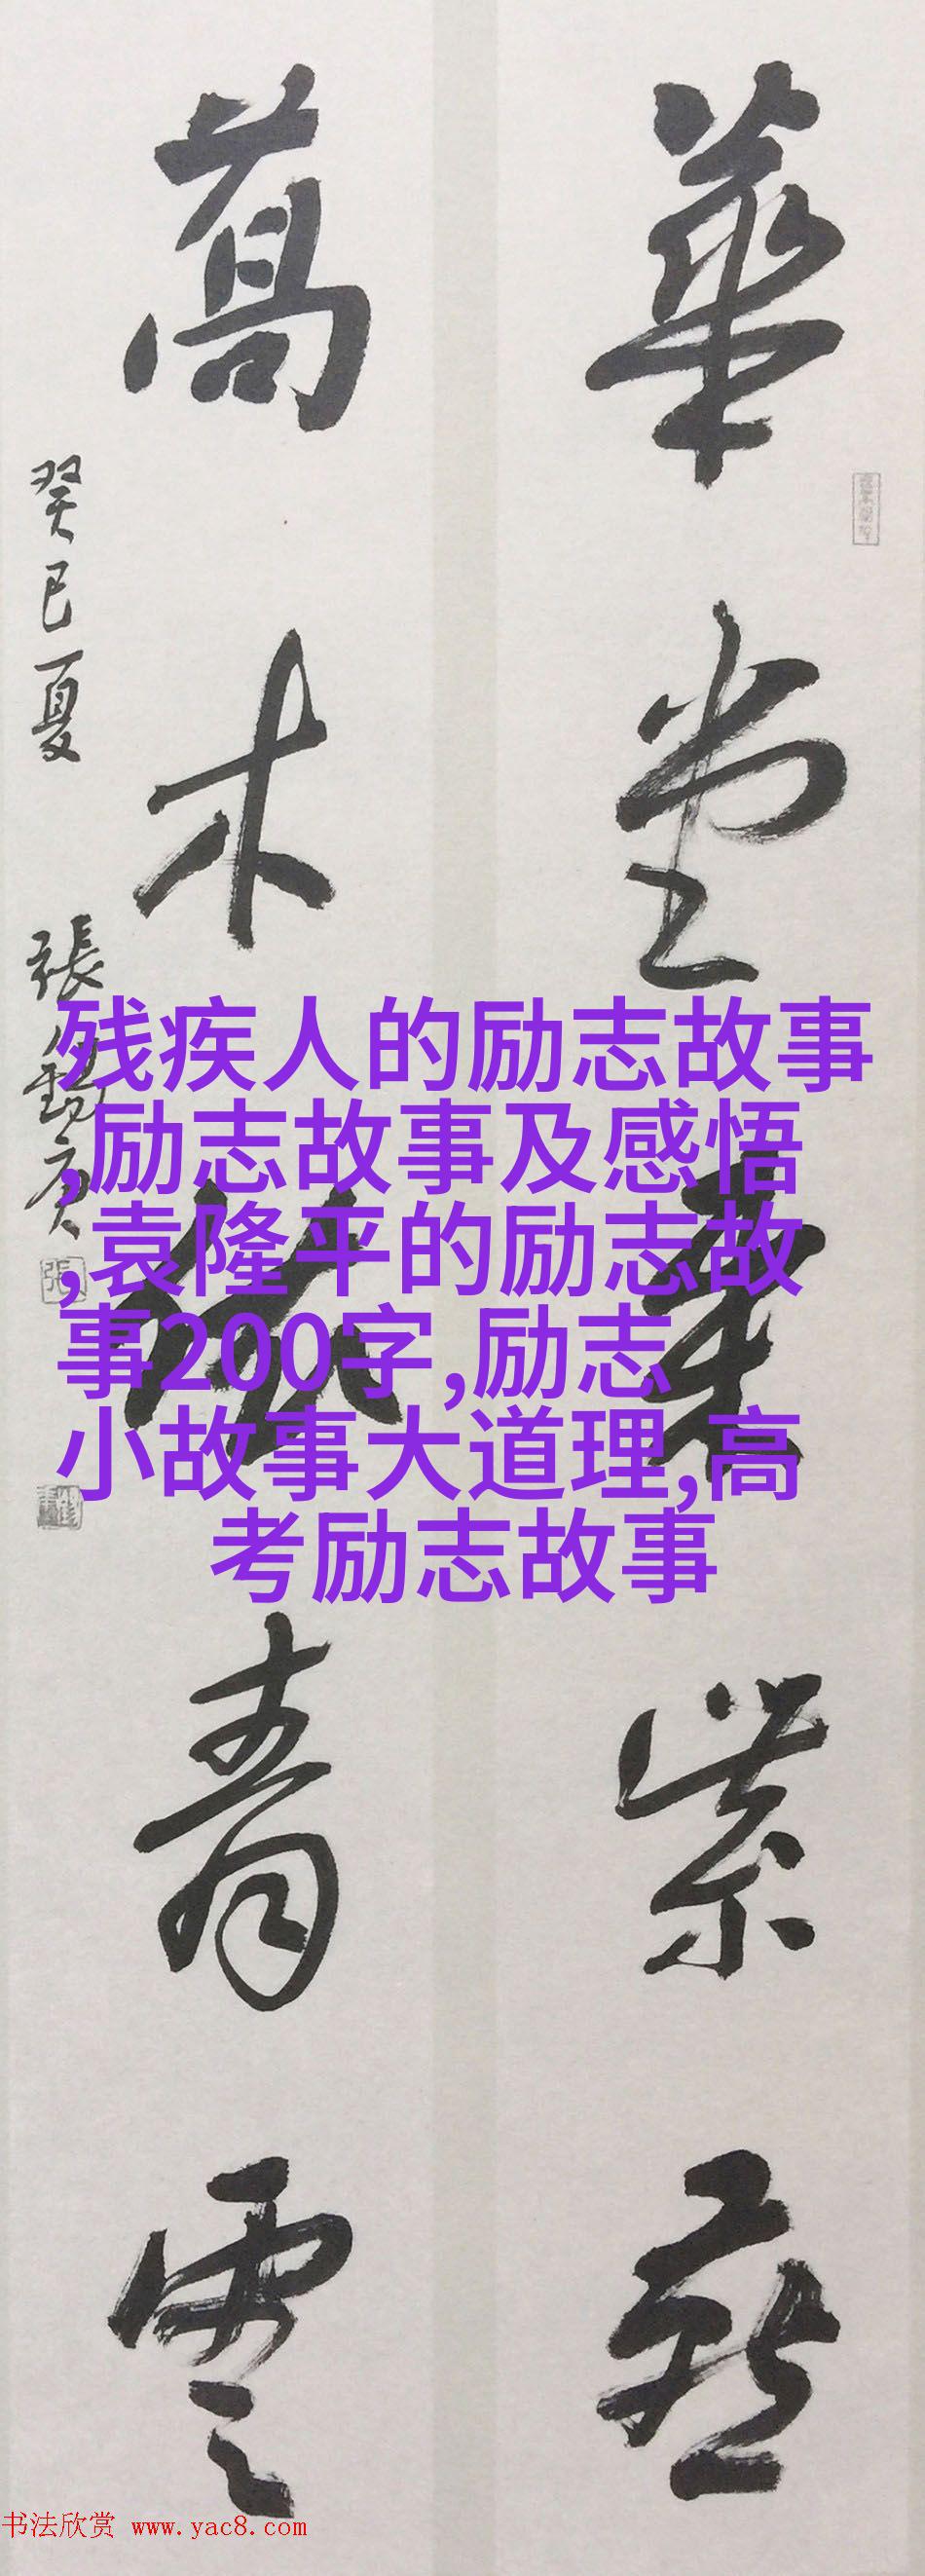 華堂来紫燕
萬木
青雲
癸巳夏 張錫庚
残疾人的励志故事
,励志故事及感悟
,袁隆平的励志故
事200字,励志
小故事大道理,高
考励志故事
书法欣赏 www.yac8.com